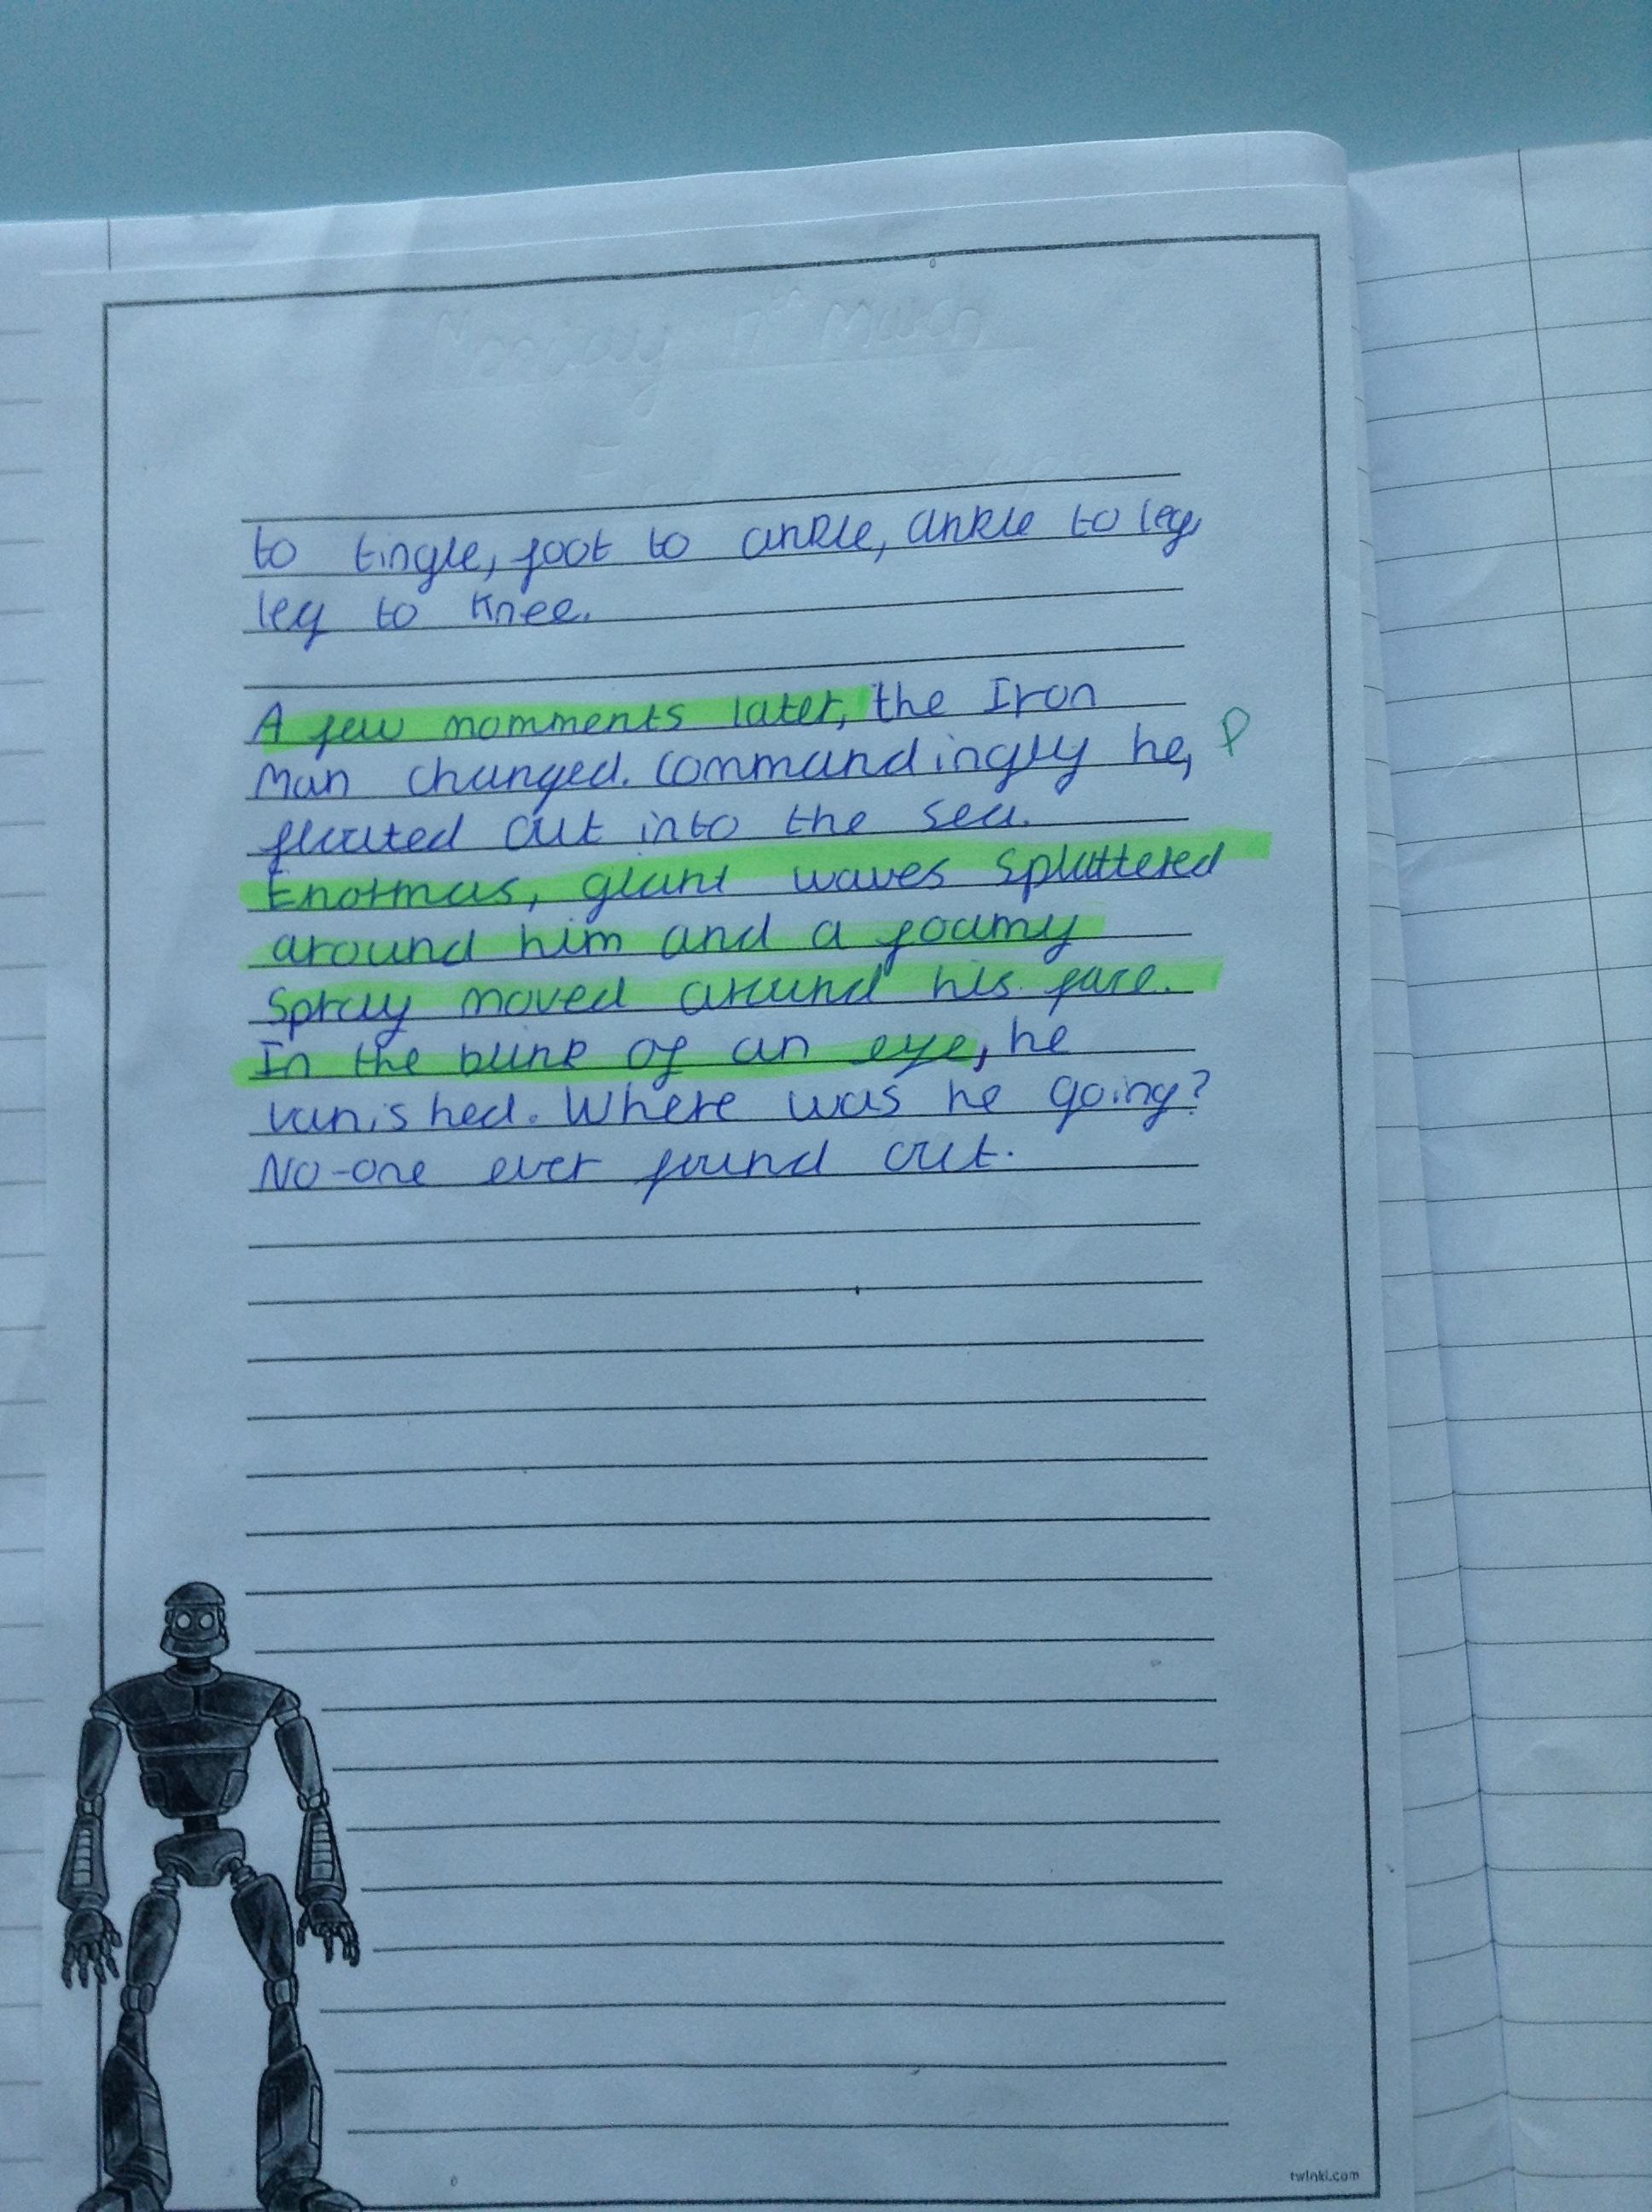 to tingle, foot to ankle, ankle to leg,
leg to knee.
A few momments later, the Iron
Man changed. Commandingly he, P
floated out into the sea.
Enormas, giant waves splattered
around him and a foamy
spray moved around his face.
In the blink of an eye, he
vanished. Where was he going?
No-one ever found out.
twinkl.com